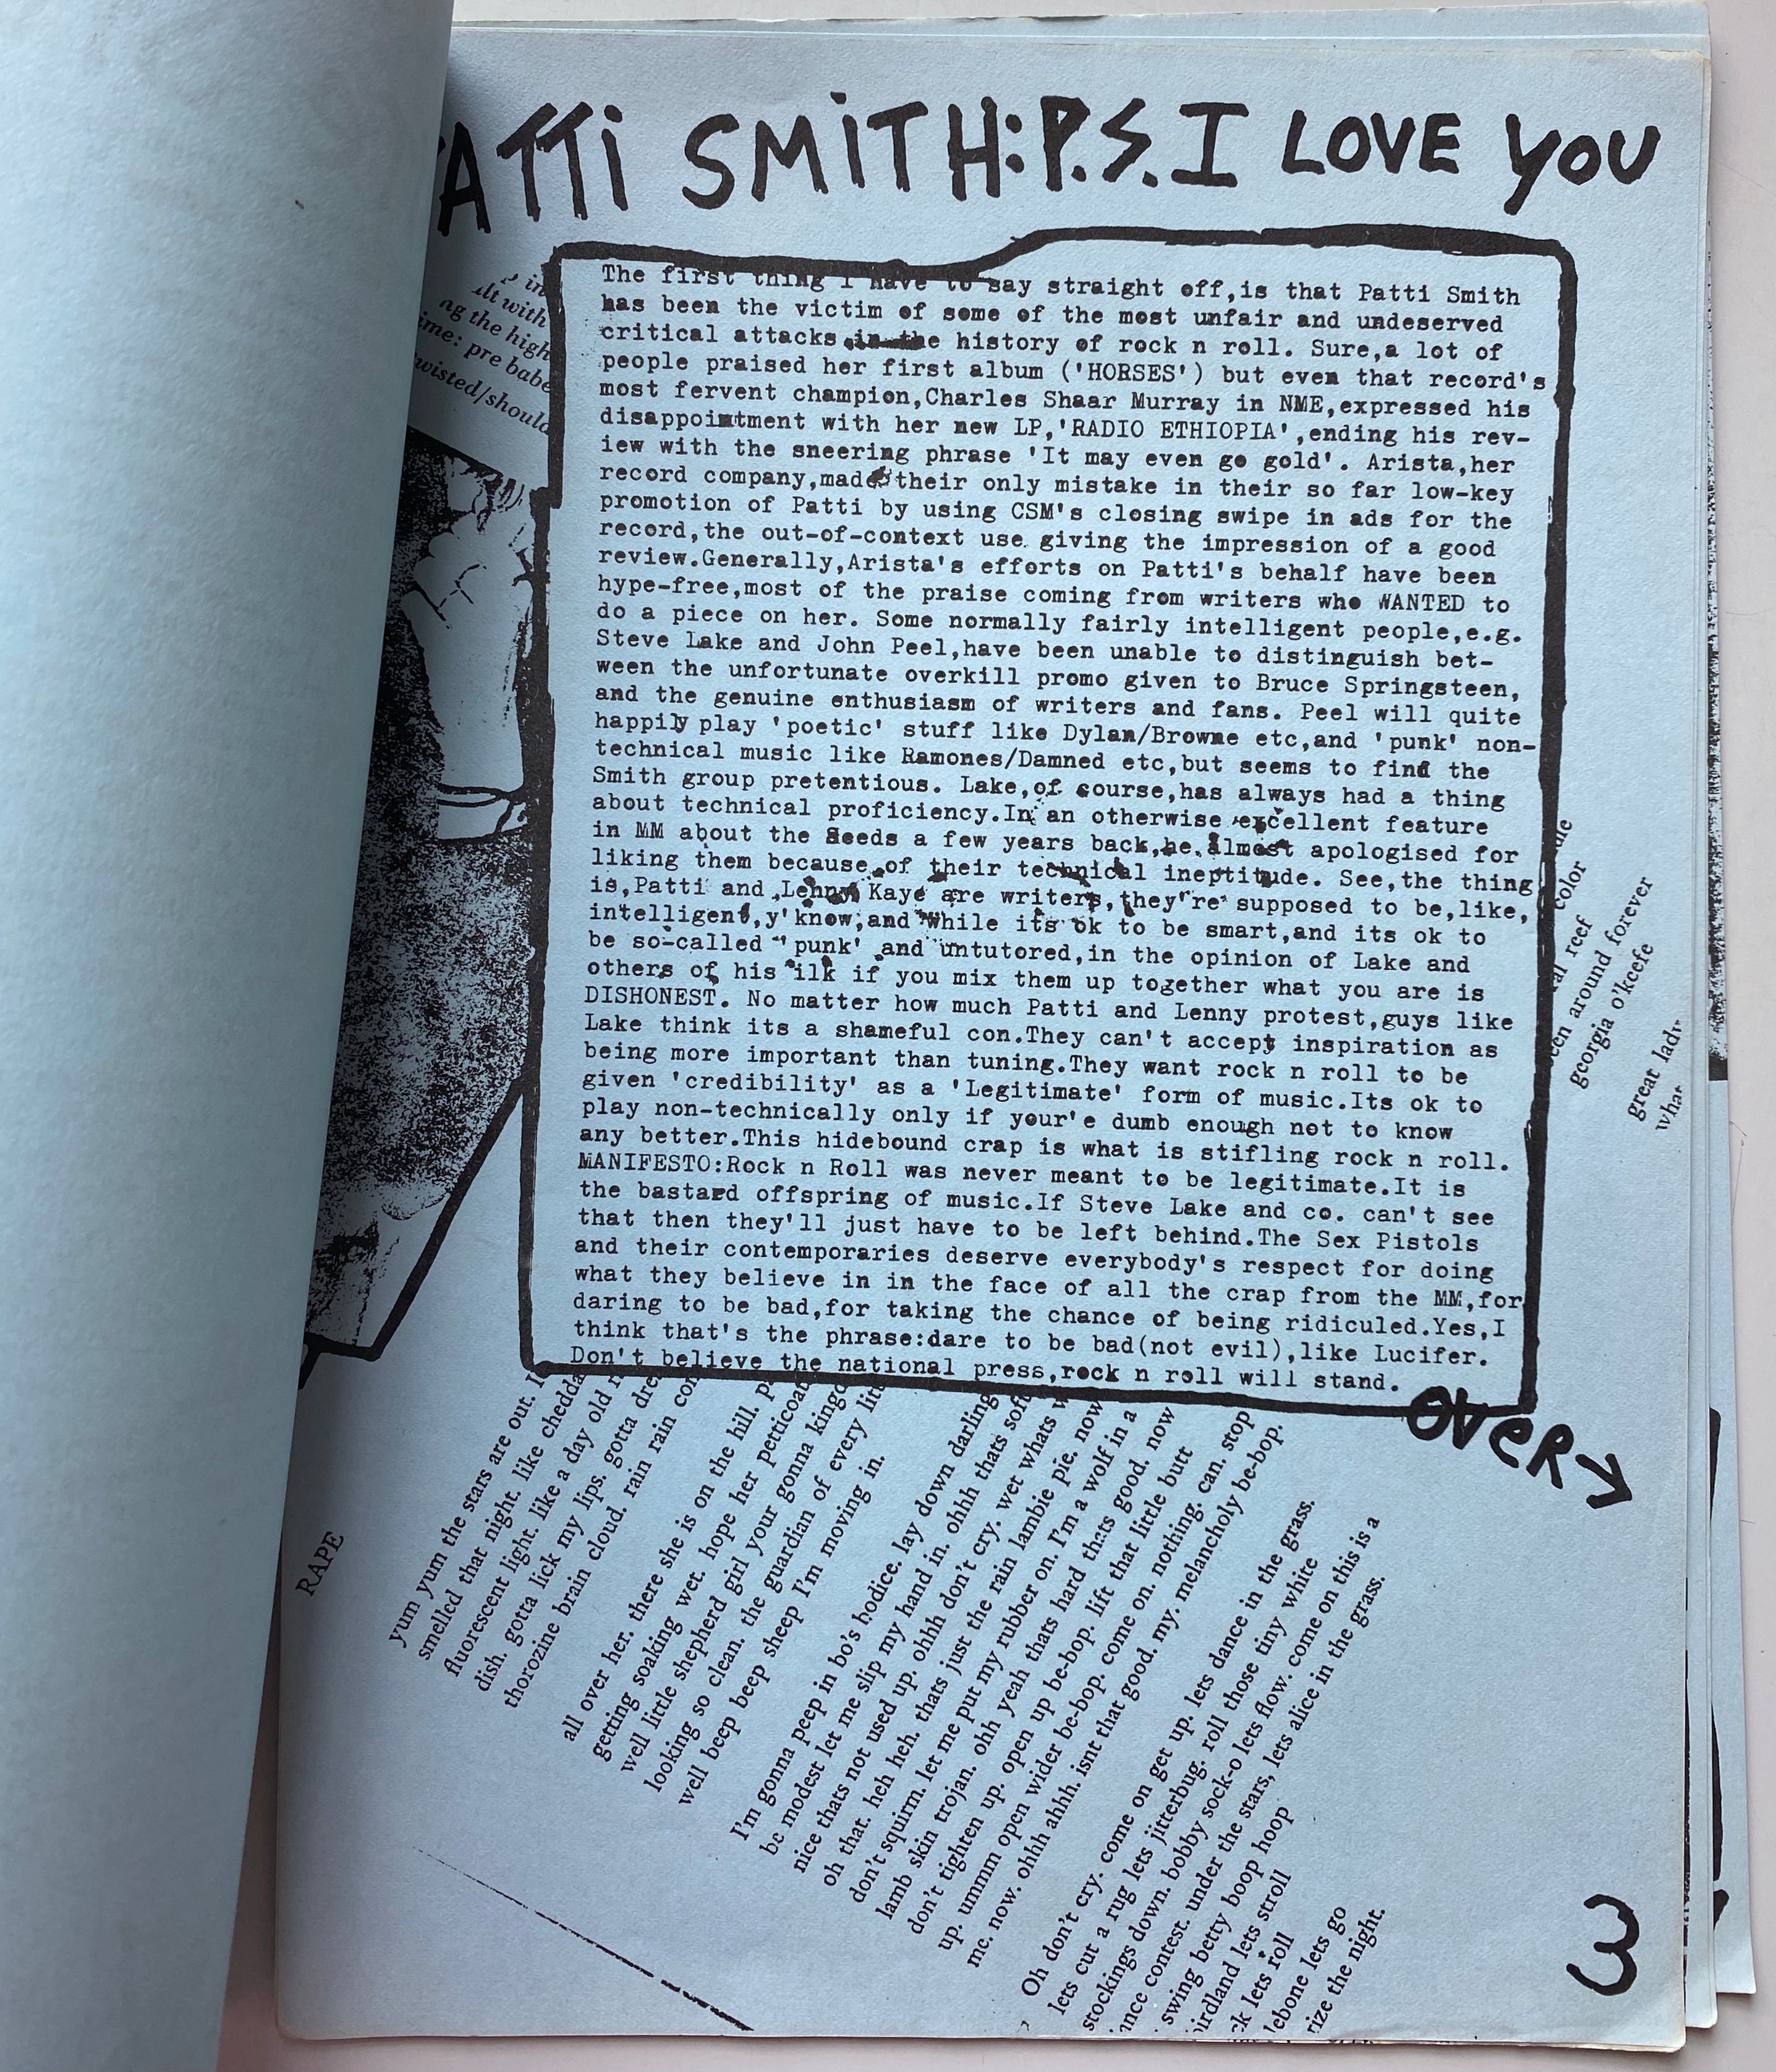 ATTI SMITH: P.S. I LOVE YOU
The first thing I have to say straight off,is that Patti Smith
has been the victim of some of the most unfair and undeserved
critical attacks in the history of rock n roll. Sure,a lot of
people praised her first album ('HORSES') but even that record's
most fervent champion,Charles Shaar Murray in NME,expressed his
disappointment with her new LP,'RADIO ETHIOPIA',ending his rev-
iew with the sneering phrase 'It may even go gold'. Arista,her
record company,made their only mistake in their so far low-key
promotion of Patti by using CSM's closing swipe in ads for the
record,the out-of-context use giving the impression of a good
review.Generally,Arista's efforts on Patti's behalf have been
hype-free,most of the praise coming from writers who WANTED to
do a piece on her. Some normally fairly intelligent people,e.g.
Steve Lake and John Peel,have been unable to distinguish bet-
ween the unfortunate overkill promo given to Bruce Springsteen,
and the genuine enthusiasm of writers and fans. Peel will quite
happily play 'poetic' stuff like Dylan/Browne etc,and 'punk' non-
technical music like Ramones/Damned etc,but seems to find the
Smith group pretentious. Lake,of course,has always had a thing
about technical proficiency.In an otherwise excellent feature
in MM about the Seeds a few years back,he almost apologised for
liking them because of their technical ineptitude. See,the thing
is,Patti and Lenny Kaye are writers,they're supposed to be,like,
intelligent,y'know,and while its ok to be smart,and its ok to
be so-called 'punk' and untutored,in the opinion of Lake and
others of his ilk if you mix them up together what you are is
DISHONEST. No matter how much Patti and Lenny protest,guys like
Lake think its a shameful con.They can't accept inspiration as
being more important than tuning.They want rock n roll to be
given 'credibility' as a 'Legitimate' form of music.Its ok to
play non-technically only if your'e dumb enough not to know
any better.This hidebound crap is what is stifling rock n roll.
MANIFESTO:Rock n Roll was never meant to be legitimate.It is
the bastard offspring of music.If Steve Lake and co. can't see
that then they'll just have to be left behind.The Sex Pistols
and their contemporaries deserve everybody's respect for doing
what they believe in in the face of all the crap from the MM,for
daring to be bad,for taking the chance of being ridiculed.Yes,I
think that's the phrase:dare to be bad(not evil),like Lucifer.
Don't believe the national press,rock n roll will stand.
OVER
in
with
the high
pre babe
color
reef
around forever
georgia o'keefe
great lady
RAPE
yum yum the stars are out.
smelled that night. like chedda
fluorescent light. like a day old
dish. gotta lick my lips. gotta
thorozine brain cloud. rain rain
all over her. there she is on the hill.
getting soaking wet. hope her petticoat
well little shepherd girl your gonna
looking so clean. the guardian of every
well beep beep sheep I'm moving in.
I'm gonna peep in bo's bodice. lay down darling
be modest let me slip my hand in. ohhh thats soft
nice thats not used up. ohhh don't cry. wet whats
oh that. heh heh. thats just the rain lambie pie. now
don't squirm. let me put my rubber on. I'm a wolf in a
lamb skin trojan. ohh yeah thats hard thats good. now
don't tighten up. open up be-bop. lift that little butt
up. ummm open wider be-bop. come on. nothing. can. stop
me. now. ohhh ahhh. isnt that good. my. melancholy be-bop.
Oh don't cry. come on get up. lets dance in the grass.
lets cut a rug lets jitterbug. roll those tiny white
stockings down. bobby sock-o lets flow. come on this is a
contest. under the stars, lets alice in the grass.
swing betty boop hoop
lets stroll
lets roll
lets go
the night.
3